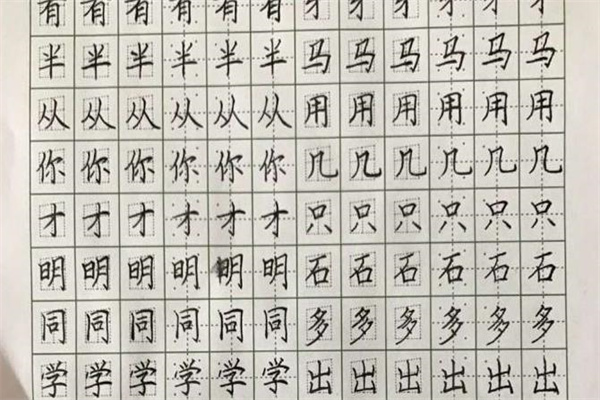 有有有有有有
半半半半半半马马马马马马
从从从从从从用用用用用用
你你你你你你几几几几几几
才才才才才才只只只只只只
明明明明明明石石石石石石
同同同同同同多多多多多多
学学学学学学出出出出出出